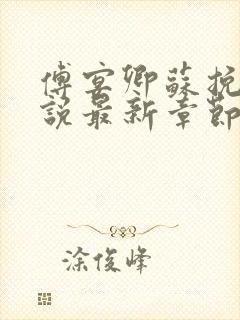 傅宴卿蘇挽
說最新章節
涂俊峰